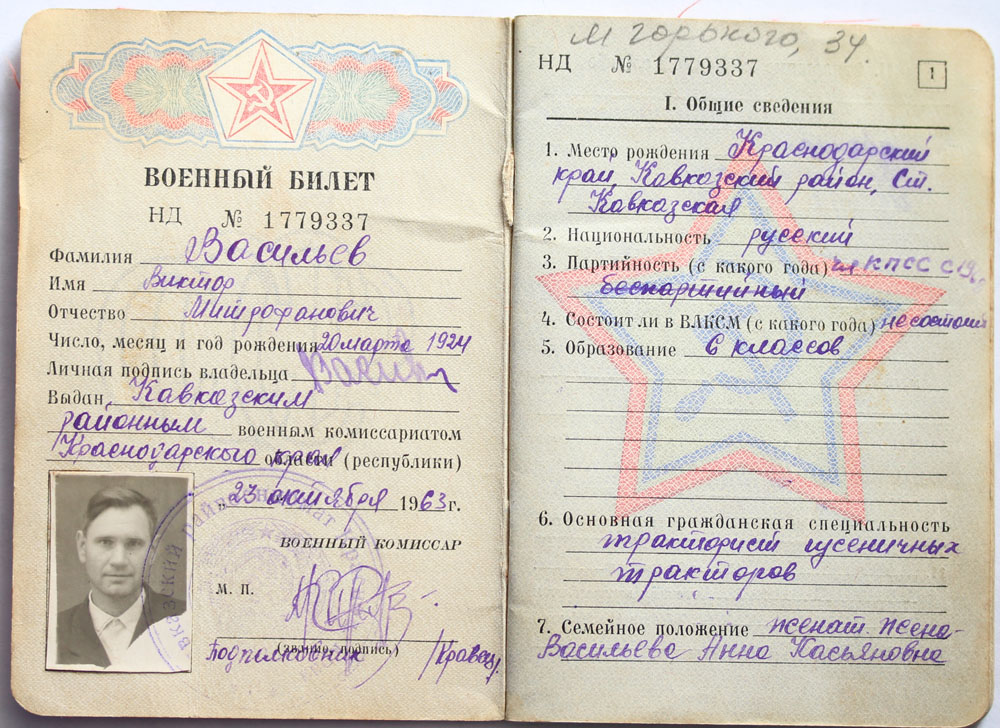 ВОЕННЫЙ БИЛЕТ
НД № 1779337
Фамилия Васильев
Имя Виктор
Отчество Митрофанович
Число, месяц и год рождения 20 марта 1924
Личная подпись владельца Васил
Выдан Кавказским
районным военным комиссариатом
Краснодарского края области (республики)
„23 октября 1963 г.
ВОЕННЫЙ КОМИССАР
М. П.
(звание, подпись)
Подполковник /Кравец/
М Горького, 34.
НД № 1779337
1
I. Общие сведения
1. Место рождения Краснодарский
край, Кавказский район, Ст.
Кавказская
2. Национальность русский
3. Партийность (с какого года) чл КПСС с 19
беспартийный
4. Состоит ли в ВЛКСМ (с какого года) не состоит
5. Образование 6 классов
6. Основная гражданская специальность
тракторист гусеничных
тракторов
7. Семейное положение женат. жена-
Васильева Анна Касьяновна